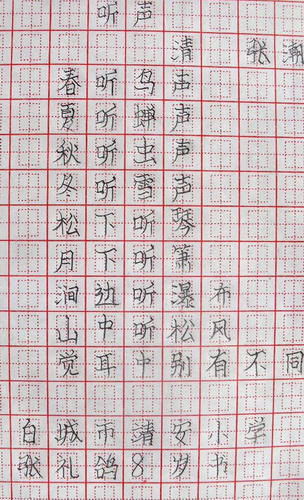 听声
清 张潮
春听鸟声
夏听蝉声
秋听虫声
冬听雪声
松下听琴
月下听箫
涧边听瀑布
山中听松风
觉耳中别有不同
白城市靖安小学
张礼鸽8岁书